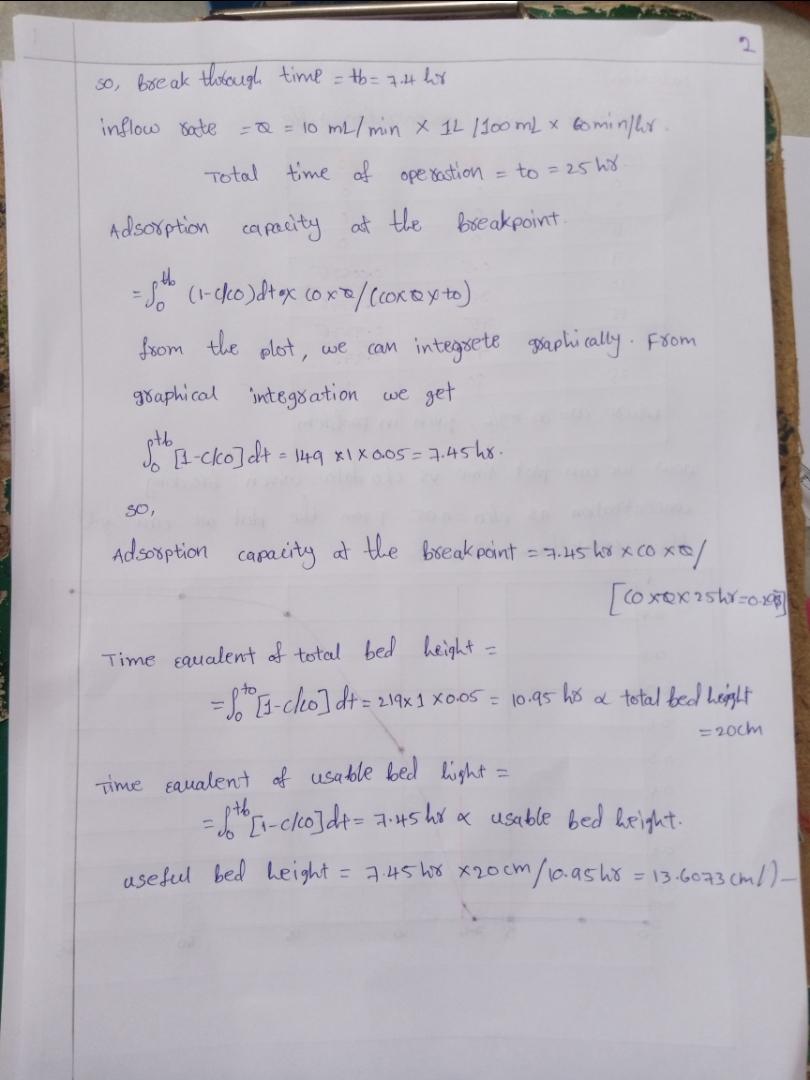 2
so, Break through time = tb = 7.4 hr
inflow rate = Q = 10 mL/min × 1L /100 mL × 60min/hr.
Total time of operastion = to = 25 hr
Adsorption capacity at the breakpoint.
= ∫₀^tb (1-c/co)dt × co×Q/(co×Q×to)
from the plot, we can integrete graphically. From
graphical integration we get
∫₀^tb [1-c/co]dt = 149 ×1×0.05 = 7.45 hr.
so,
Adsorption capacity at the breakpoint = 7.45 hr × co ×Q/
[co×Q×25hr=0.298]
Time equalent of total bed height =
= ∫₀^to [1-c/co] dt = 219×1 ×0.05 = 10.95 hr α total bed height
= 20cm
Time equalent of usable bed hight =
= ∫₀^tb [1-c/co]dt = 7.45 hr α usable bed height.
useful bed height = 7.45 hr ×20 cm/10.95 hr = 13.6073 cm//-